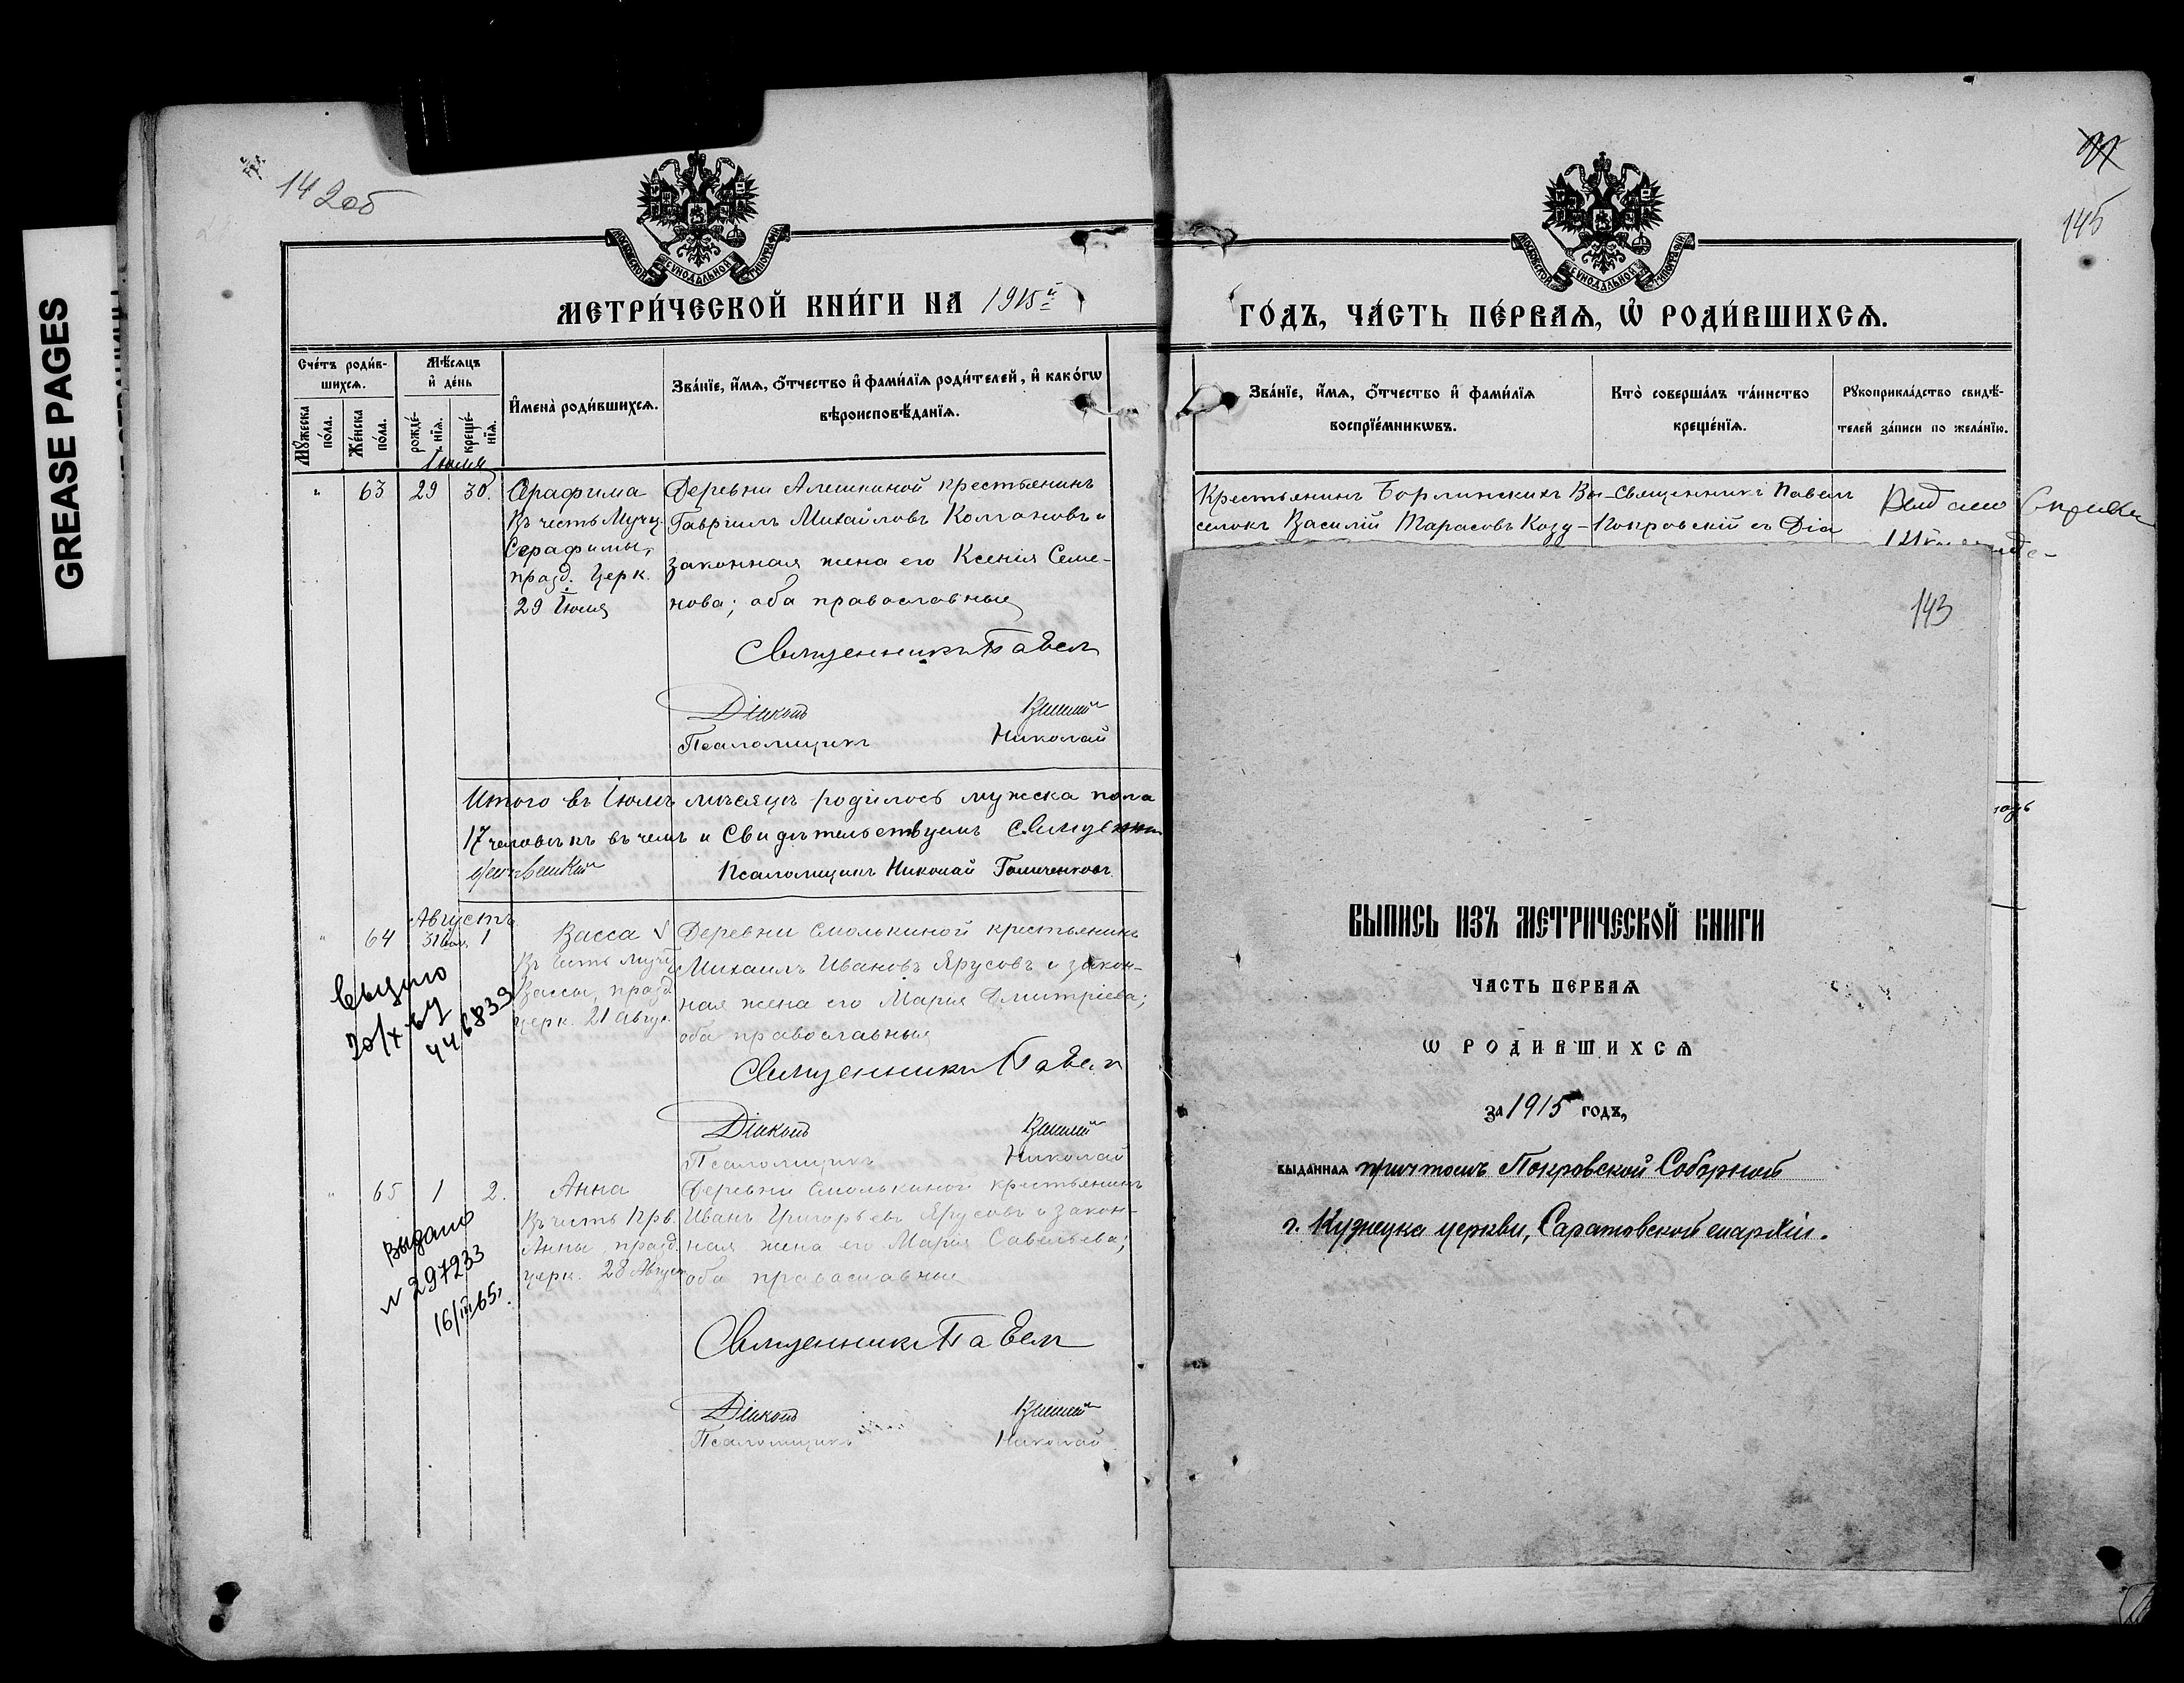 GREASE PAGES
142об
МЕТРИ́ЧЕСКОЙ КНИ́ГИ НА 1915й
Сче́тъ роди́в-
шихсѧ.
Мѣ́сѧцъ
и҆ де́нь
И҆мена̀ роди́вшихсѧ.
Зва́нїе, и҆́мѧ, ѻ҆́тчество и҆ фами́лїѧ роди́телей, и҆ како́гѡ
вѣроисповѣ́данїѧ.
Мꙋ́жеска
по́ла.
Же́нска
по́ла.
рожде́-
нїѧ.
креще́-
нїѧ.
Іюля
" 63 29 30.
Серафима
Въ честь Мучц.
Серафимы,
празд. Церк.
29 Іюля
Деревни Алешкиной крестьянинъ
Гавріилъ Михайловъ Колгановъ и
законная жена его Ксенія Семе-
нова; оба православные
Священникъ Павелъ
Діаконъ
Псаломщикъ Николай
Итого въ Іюлѣ мѣсяцѣ родилось мужска пола
17 человѣкъ въ чемъ и Свидѣтельствуемъ
Псаломщикъ Николай
Августъ
" 64 31 Іюл. 1
Васса
Въ честь Мучц
Вассы, празд.
Церк. 21 Авгус.
Деревни Смолькиной крестьянинъ
Михаилъ Ивановъ Ярусовъ и закон-
ная жена его Марія Дмитріева;
оба православные
Священникъ Павелъ
Діаконъ
Псаломщикъ Николай
Выдано
446839
" 65 1 2.
Анна
Въ честь Прв.
Анны, празд.
церк. 28 Август.
Деревни Смолькиной крестьянинъ
Иванъ Григорьевъ Ярусовъ и закон-
ная жена его Марія Савельева;
оба православные
Священникъ Павелъ
Діаконъ
Псаломщикъ Николай
Выдано
№ 297233
16/III 65
145
ГО́ДЪ, ЧА́СТЬ ПЕ́РВАѦ, Ѡ҆ РОДИ́ВШИХСѦ.
Зва́нїе, и҆́мѧ, ѻ҆́тчество и҆ фами́лїѧ
воспрїе́мникѡвъ.
Кто̀ соверша́лъ та́инство
креще́нїѧ.
Рꙋкоприкла́дство свидѣ́-
телей за́писи по жела́нїю.
Крестьянинъ Борлинскихъ Вы-
селокъ Василій Тарасовъ Козу-
Священникъ Павелъ
Покровскій съ Діа
143
ВЫПИСЬ ИЗЪ МЕТРИЧЕСКОЙ КНИГИ
ЧАСТЬ ПЕРВАѦ
Ѡ РОДИВШИХСѦ
за 1915 годъ,
выданная причтомъ Покровской Соборной
г. Кузнецка церкви, Саратовской епархіи.